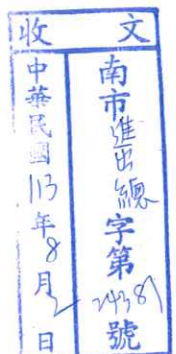 收文
南市進出總字第24381號
中華民國113年8月2日